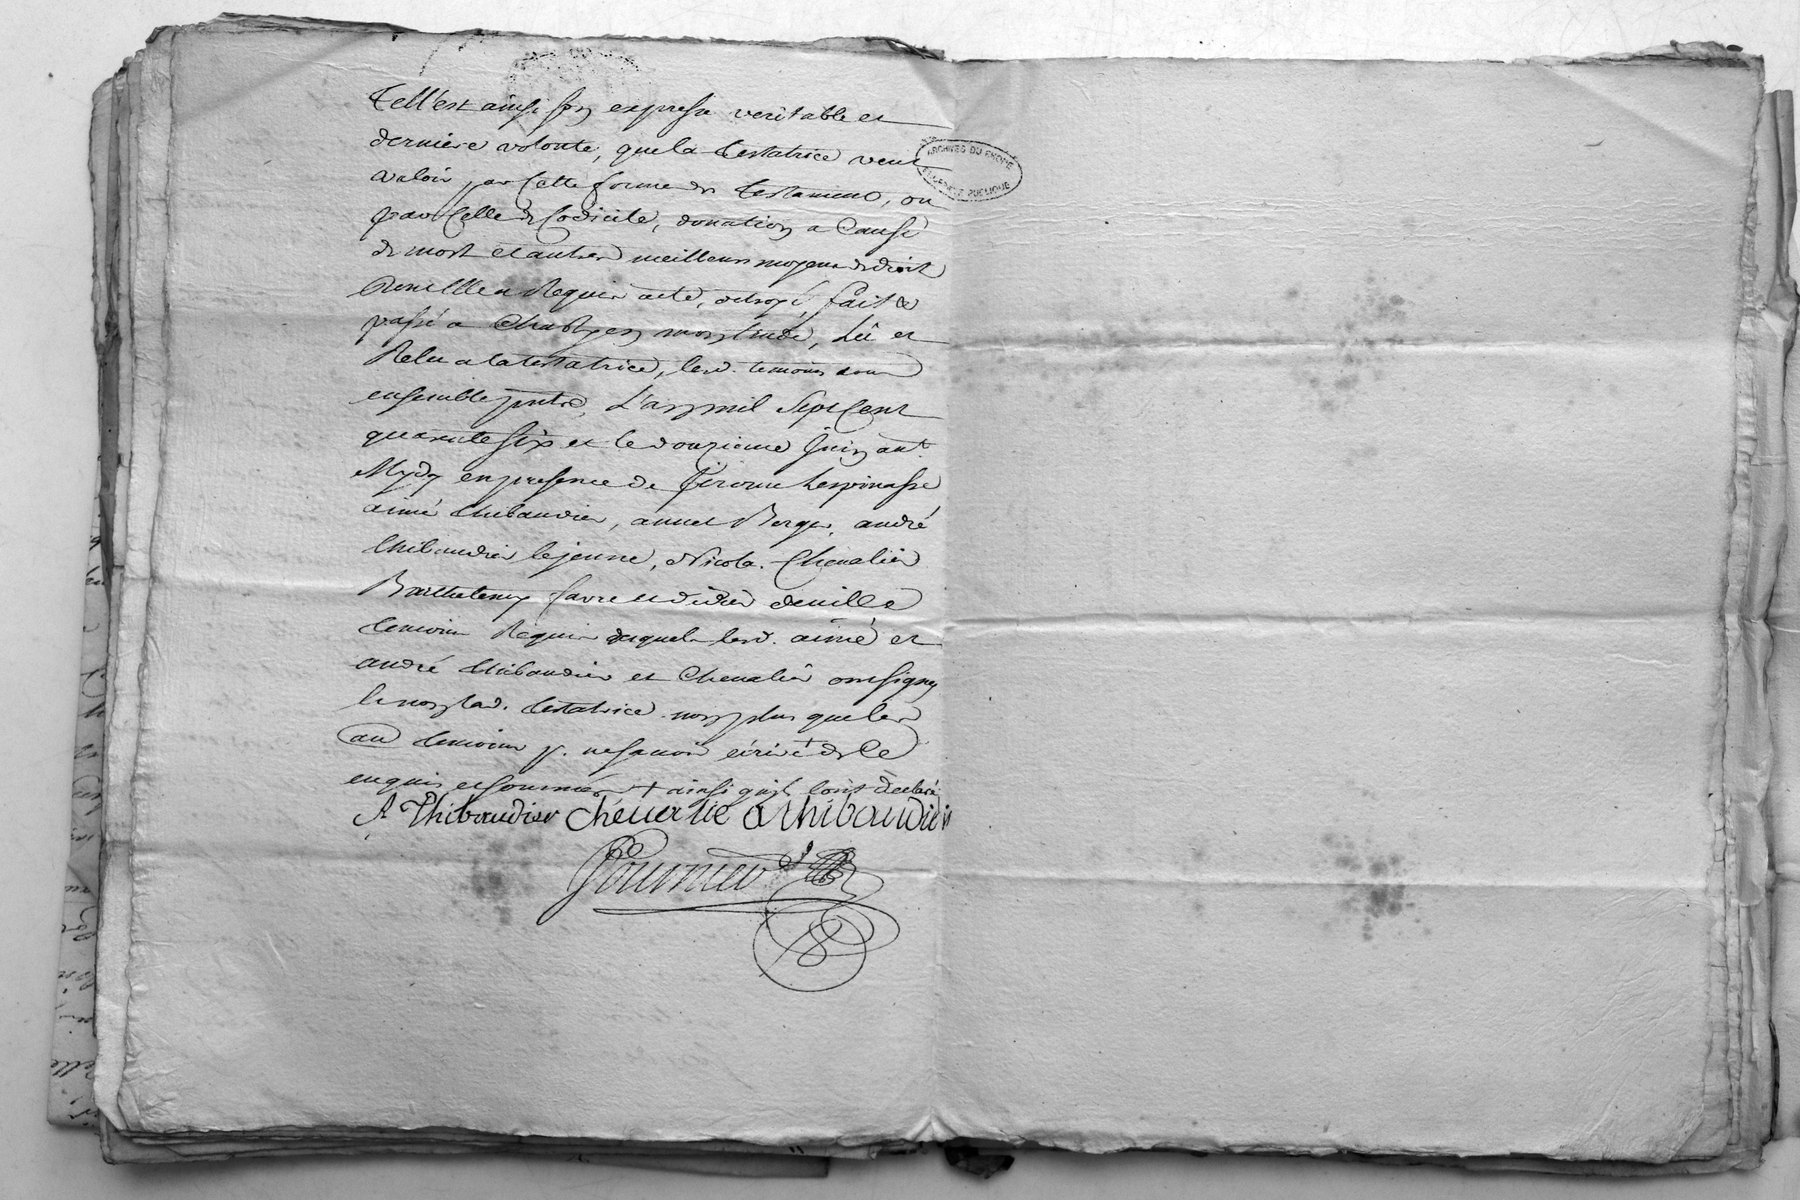 Tell'est ainsi son expresse veritable et
derniere volonté, que la testatrice veut
valoir par cette forme de testament, ou
par celle de Codicile, donation a Cause
de mort et autres meilleurs moyens de droit
dont Elle a Requis acte, octroyé, fait &
passé a en mon Etude, Lû et
Relu a la testatrice, lesd. temoins tous
ensemble L'an mil Sept Cent
quarante six et le douzieme Juin avt.
Mydy en presence de Jerome Lespinasse
aimé thibaudier, annet Berger, andré
thibaudier le jeune, Nicolas Chevalier
Barthelemy favre et didier deville
temoins Requis desquels lesd. aimé et
andré thibaudier et Chevalier ont signé
et non lad. testatrice non plus que les
au temoins p. ne savoir écrire de Ce
enquis et sommés + ainsi quils lont declaré
A Thibaudier chevalie a thibaudier
Fournier
ARCHIVES DU RHONE
PUBLIQUE